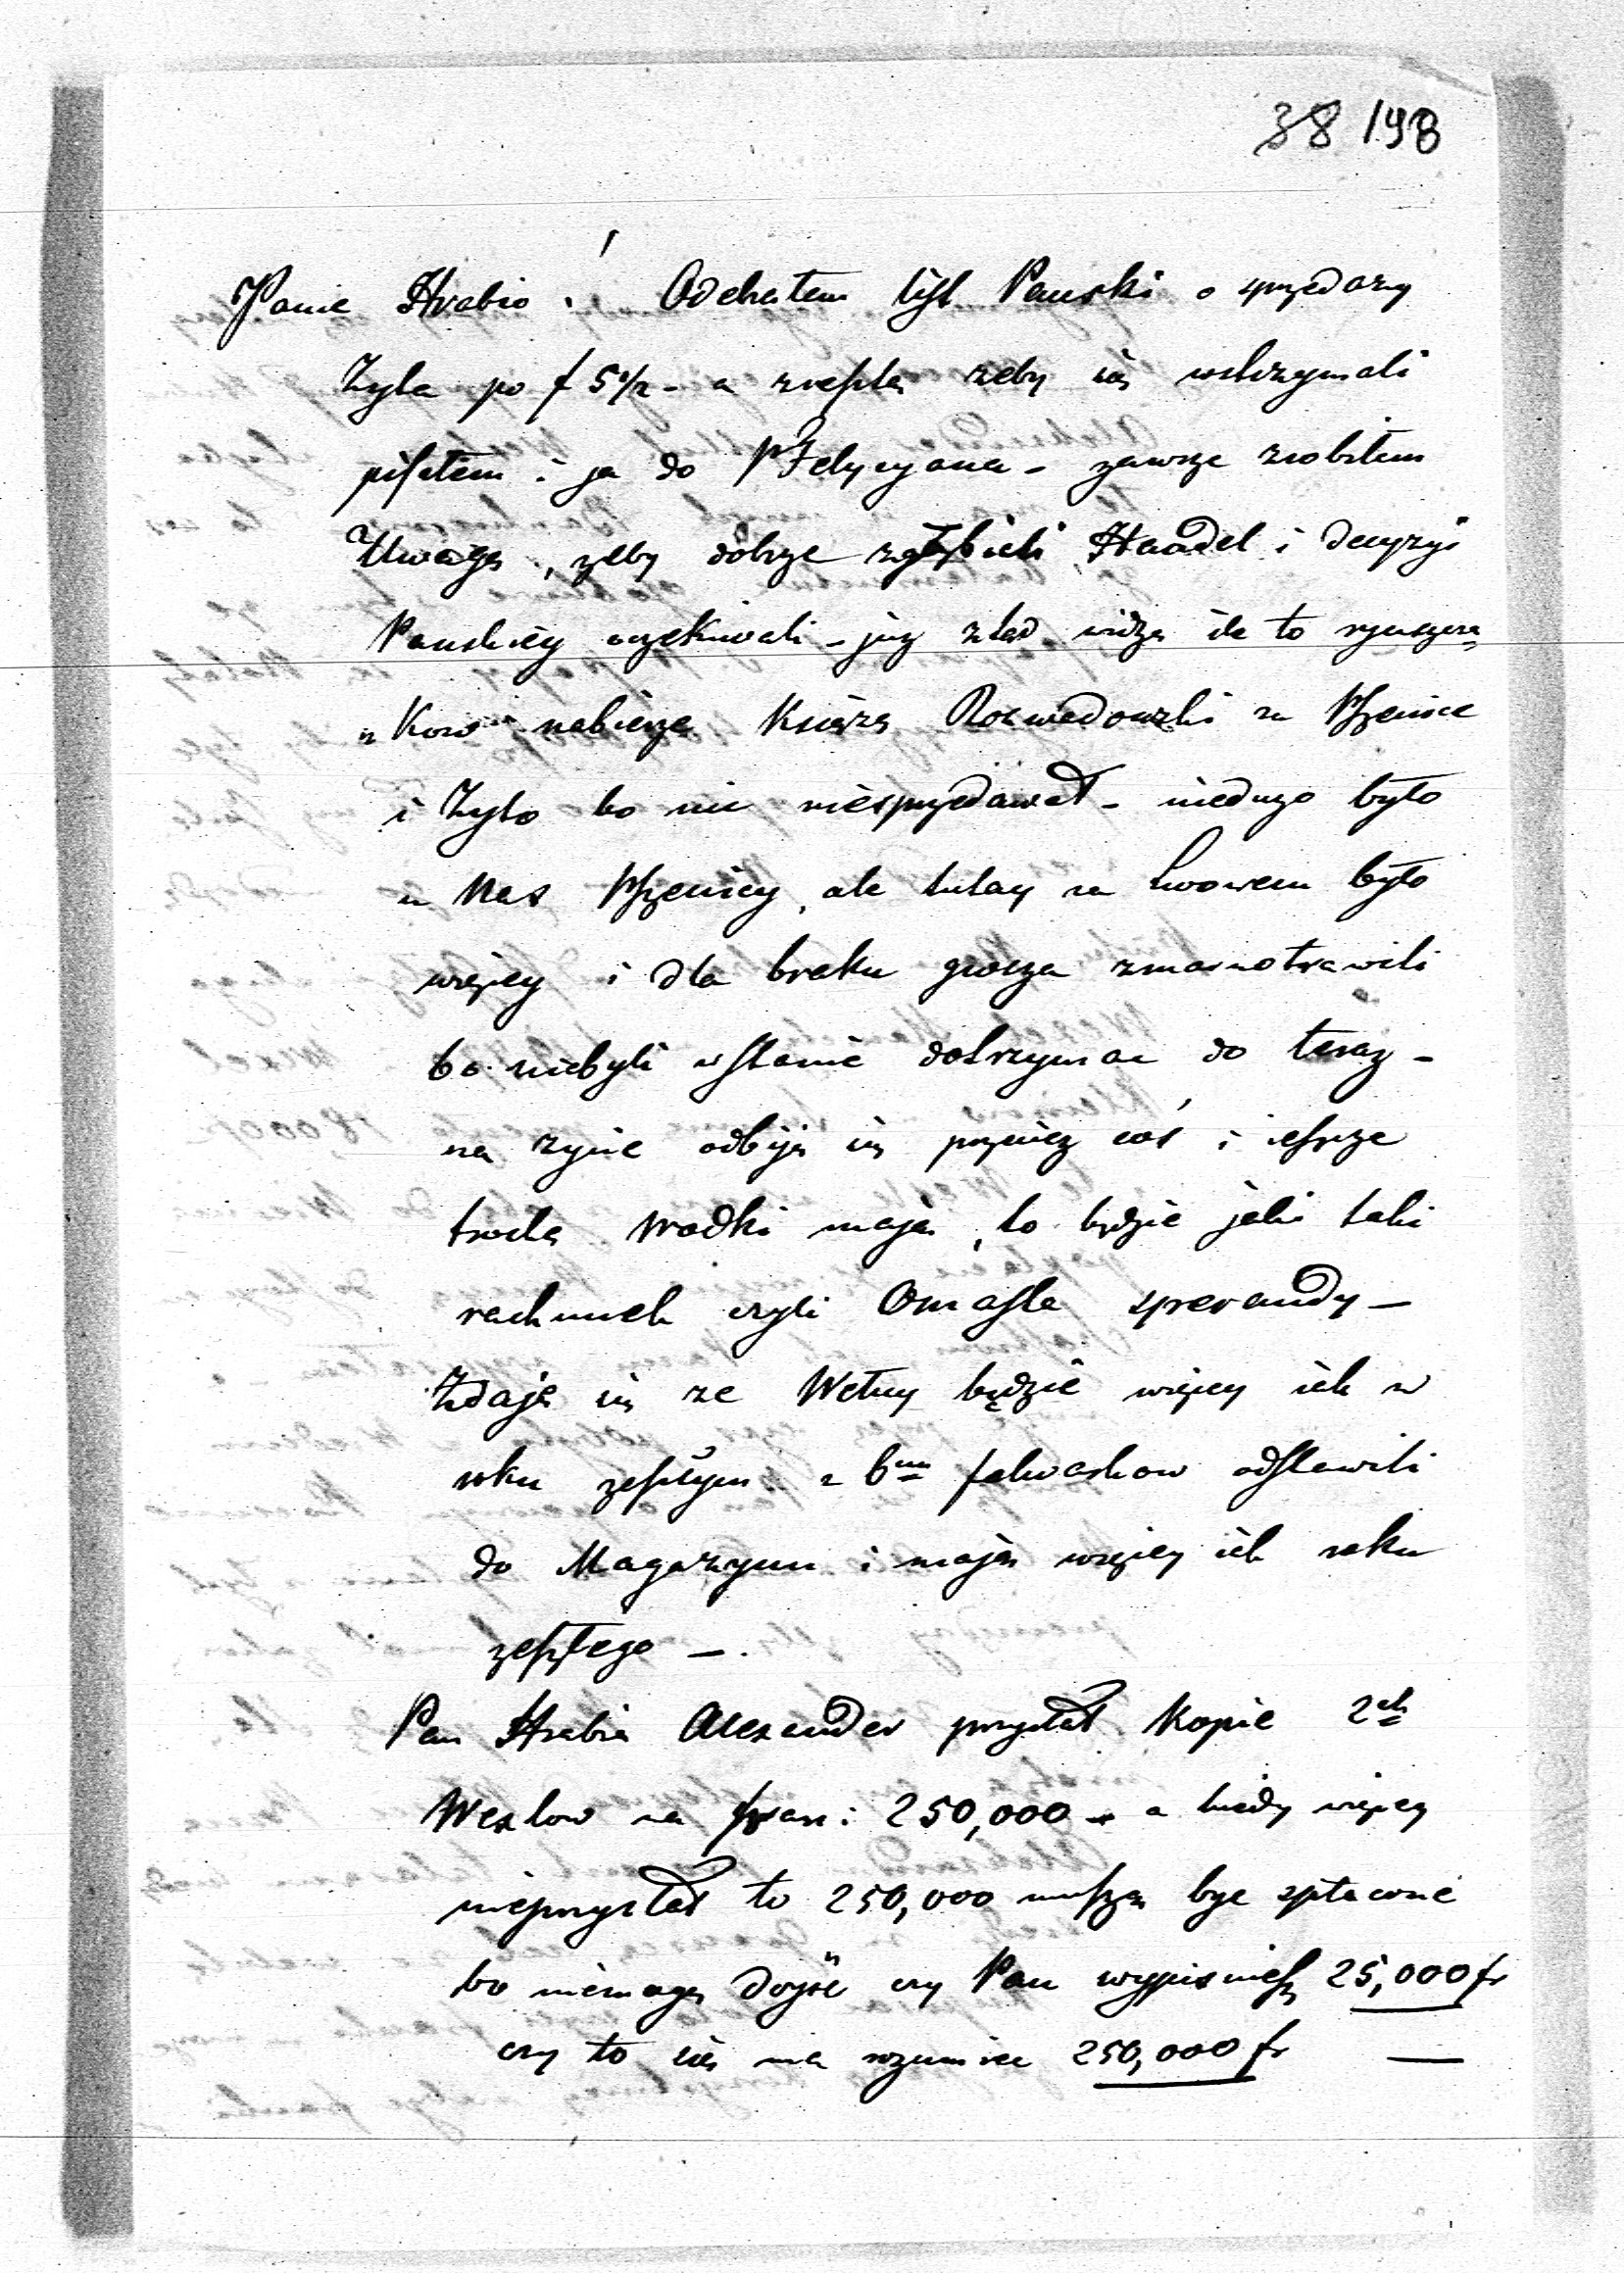 38 198
Panie Hrabio! Odebrałem list Pański o sprzedarzy
Zyta po f 5 1/2 - a resztą zeby się wstrzymali
pisałem i ja do PFelycyana - zawsze zrobiłem
Uwagę, zeby dobrze zgłębili Handel i decyzyi
Pańskiey oczekiwali - juz ztąd widzę ile to
nabierze Ksiąze Rozwadowski za Pszenice
i Zyto bo nic niesprzedawał - nieduzo było
u Nas Pszenicy, ale tutay za Lwowem było
więcey i dla braku grosza zmarnotrawili
bo niebyli wstanie dotrzymac do teraz -
na zycie odbije się przeciez coś i ieszcze
trochę Wodki mają, to będzie jaki taki
rachunek czyli Omasta sperandy -
Zdaje się ze Wełny będzie więcey jak w
roku zeszłym z 6ciu folwarkow odstawili
do Magazynu i mają więcey jak roku
zeszłego -.
Pan Hrabia Alexander przysłał Kopie 2ch
Wexlow na fran: 250,000 - a kiedy więcey
nieprzysłał to 250,000 muszą byc spłacone
bo niemogę dojśc czy Pan wypisniesz 25,000 fr
czy to się ma rozumiec 250,000 fr —